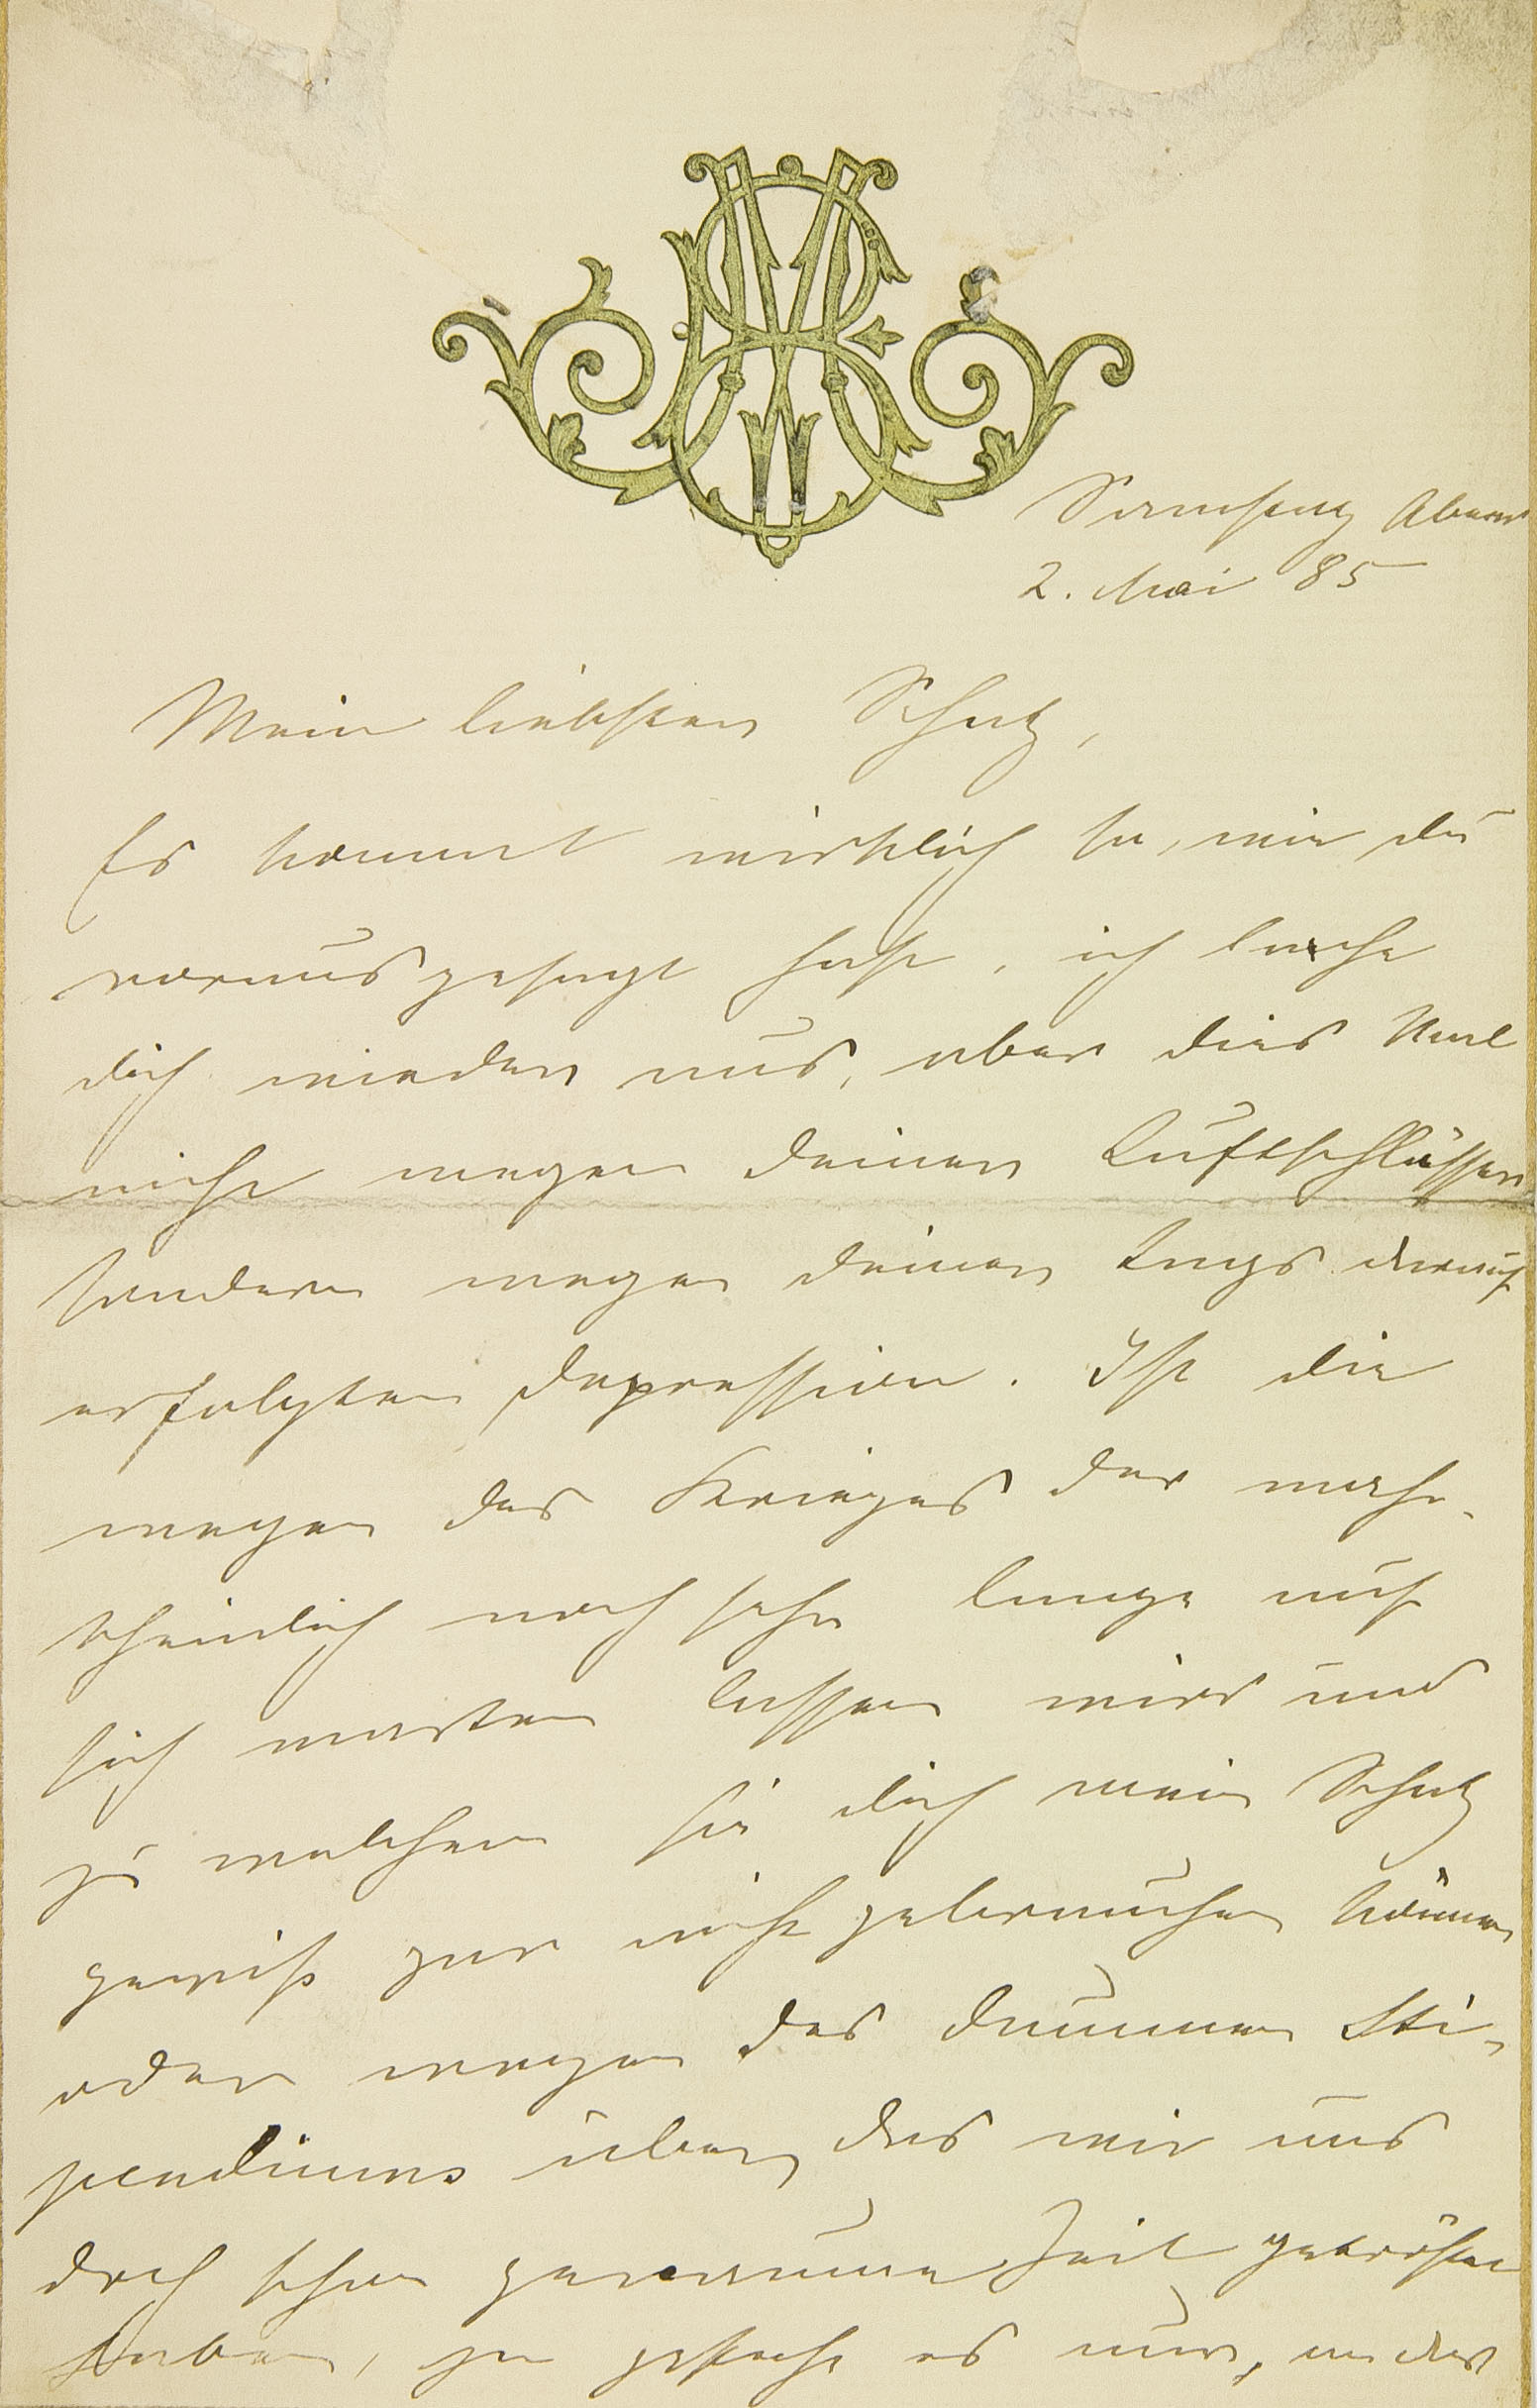 Samstag Abend
2. Mai 85
Mein liebster Schatz,
Es kommt wirklich so, wie du
vorausgesagt hast, ich lache
dich wieder aus, aber dies Mal
nicht wegen deiner Luftschlösser
sondern wegen deiner Tags darauf
erfolgten Depression. Ist die
wegen des Krieges der wahr-
scheinlich noch sehr lange auf
sich warten lassen wird und
zu welchem sie dich mein Schatz
gewiß gar nicht gebrauchen können
oder wegen des dummen Sti-
pendiums über das wir uns
doch schon geraume Zeit getröstet
haben, ja gestehe es nur, an das